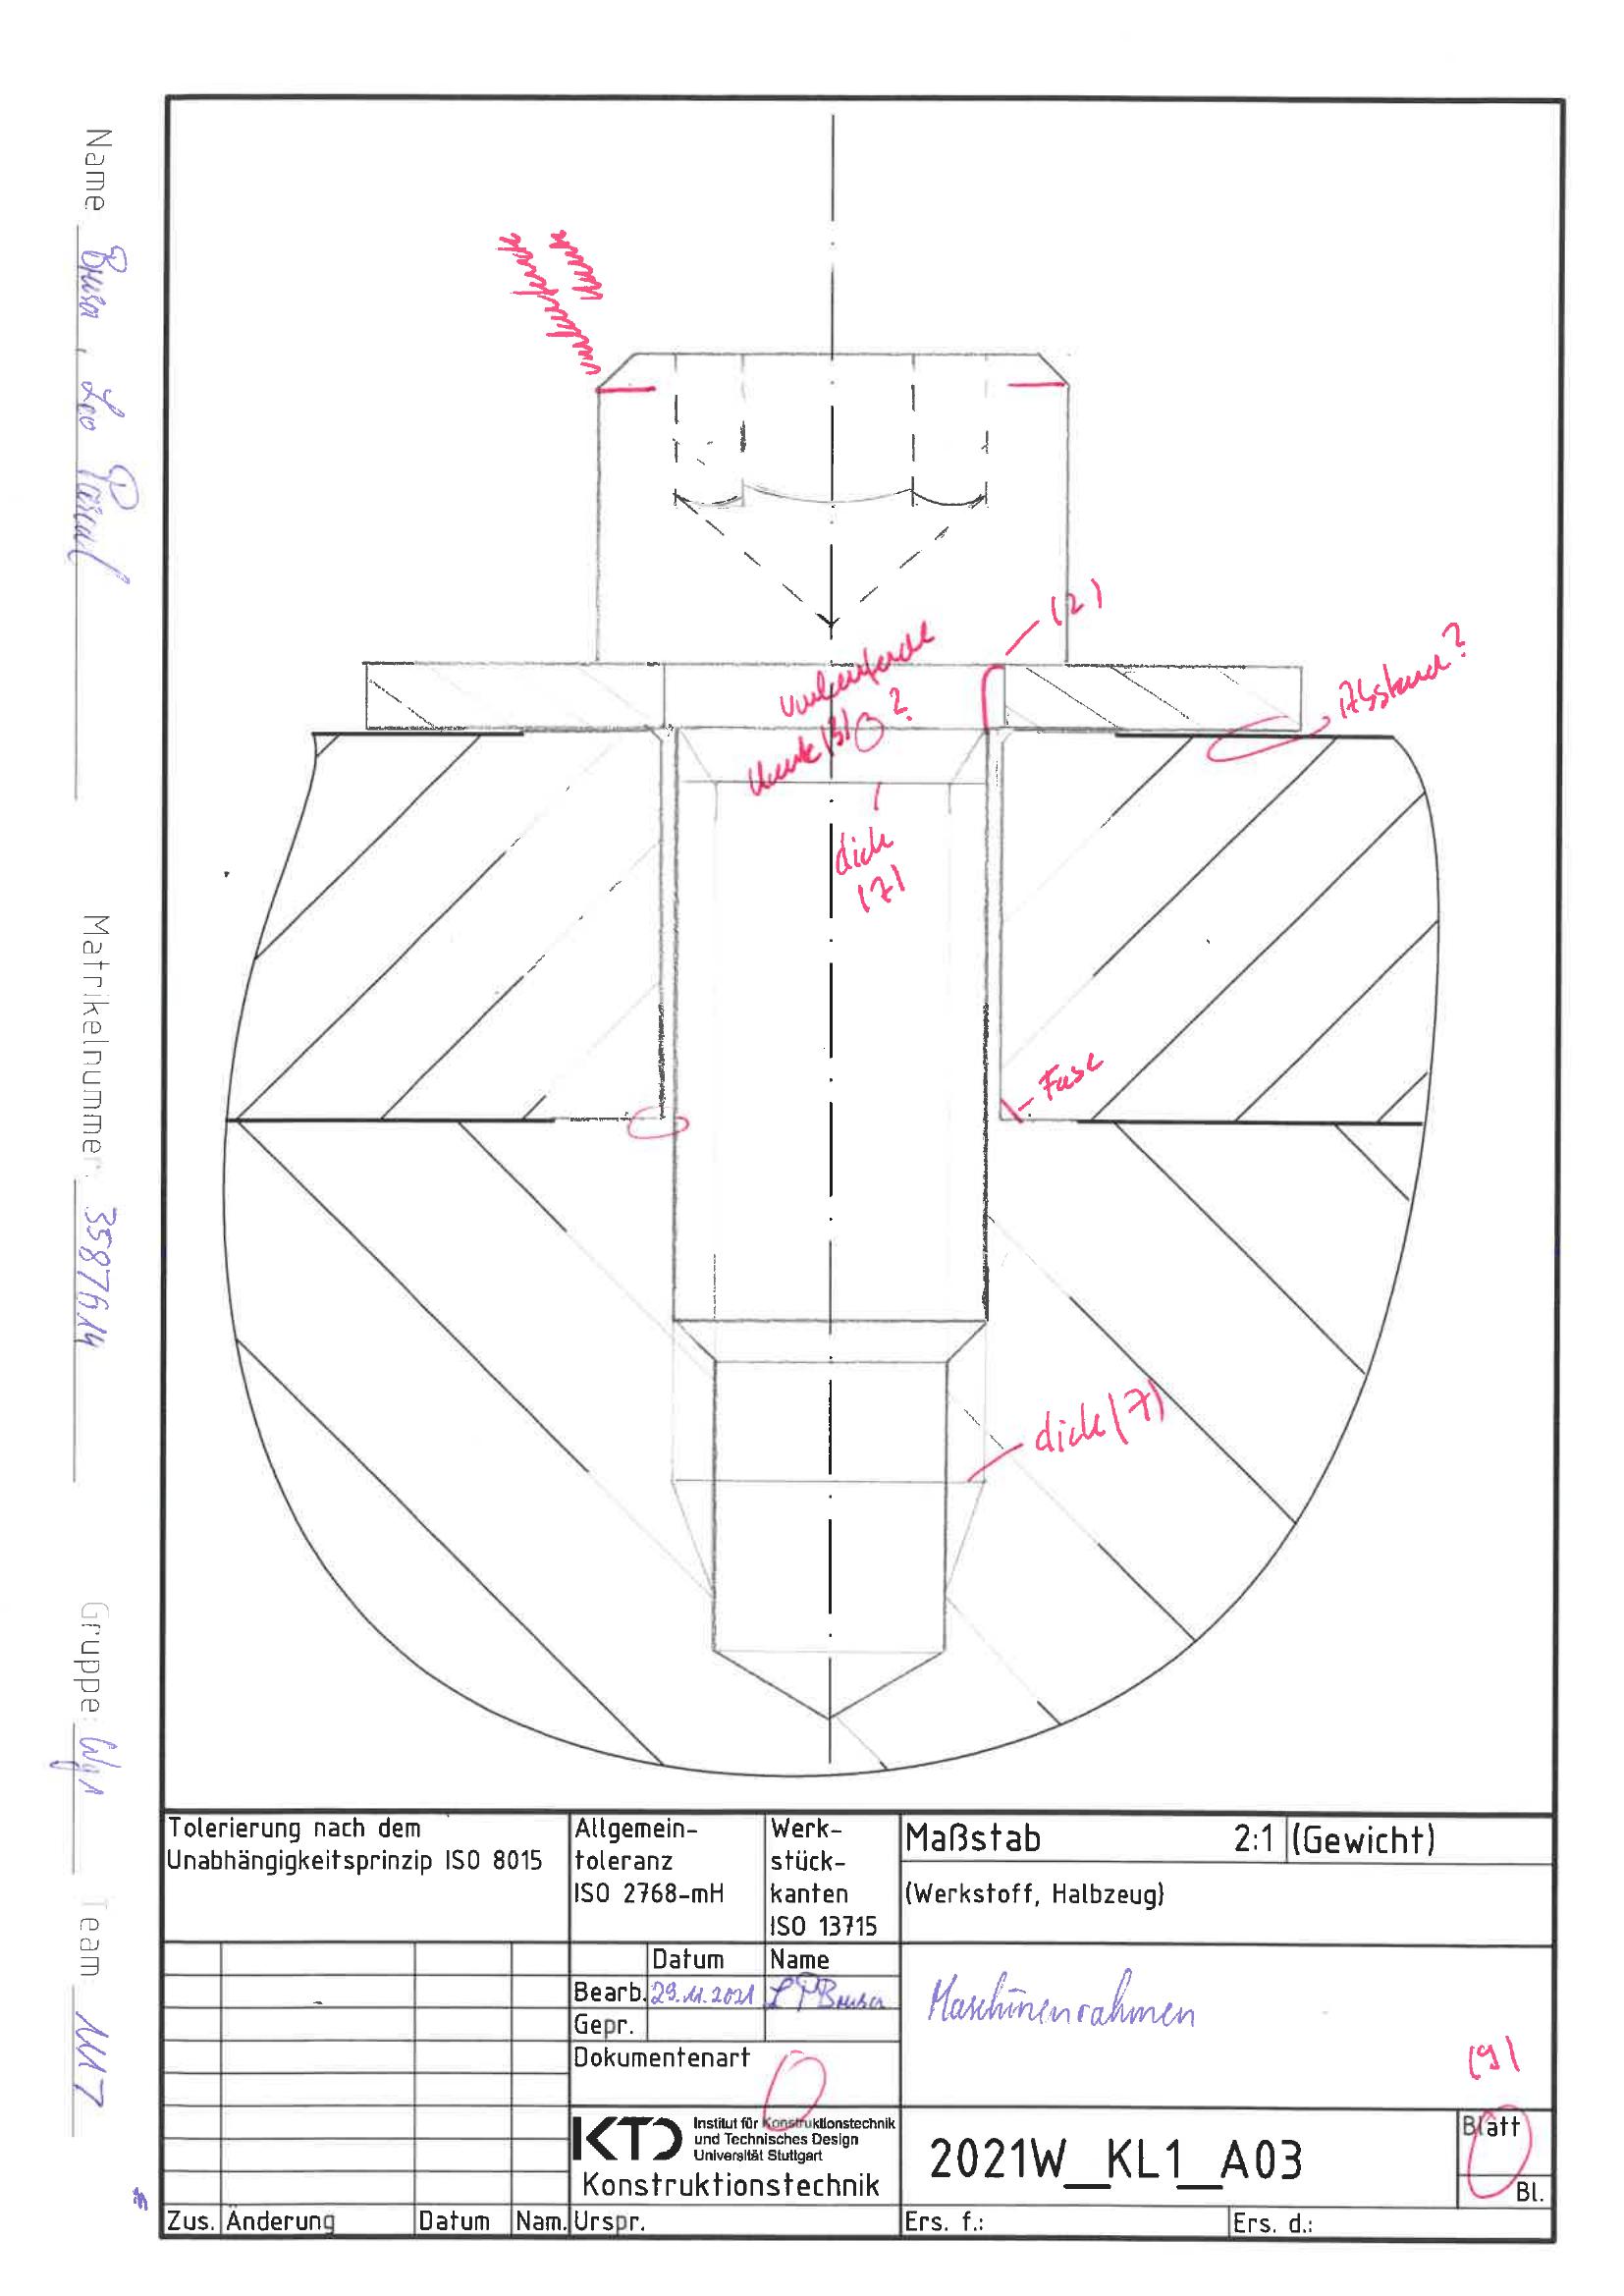 Name
Leo Pascal
Matrikelnummer: 3587614
Gruppe:
Team 1117
(2)
Abstand?
umlaufende
Kante (3) ?
dick
(7)
Fase
dick (7)
Tolerierung nach dem
Unabhängigkeitsprinzip ISO 8015
Allgemein-
toleranz
ISO 2768-mH
Werk-
stück-
kanten
ISO 13715
Maßstab 2:1 (Gewicht)
(Werkstoff, Halbzeug)
Datum Name
Bearb. 29.11.2021
Gepr.
Dokumentenart
Maschinenrahmen
(9)
KTD
Institut für Konstruktionstechnik
und Technisches Design
Universität Stuttgart
Konstruktionstechnik
2021W_KL1_A03
Blatt
Bl.
Zus. Änderung Datum Nam. Urspr. Ers. f.: Ers. d.: